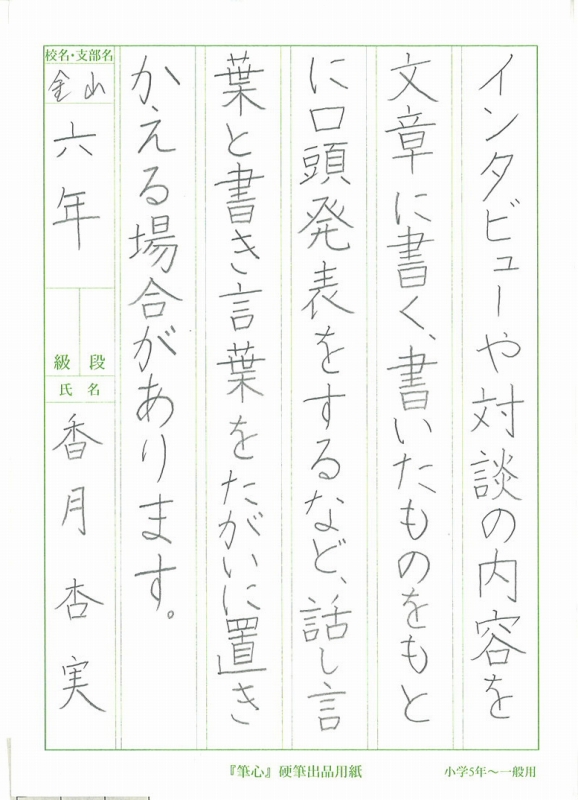 インタビューや対談の内容を
文章に書く、書いたものをもと
に口頭発表をするなど、話し言
葉と書き言葉をたがいに置き
かえる場合があります。
校名・支部名
金山
六年
級 段
氏 名
香月 杏実
『筆心』硬筆出品用紙
小学5年〜一般用